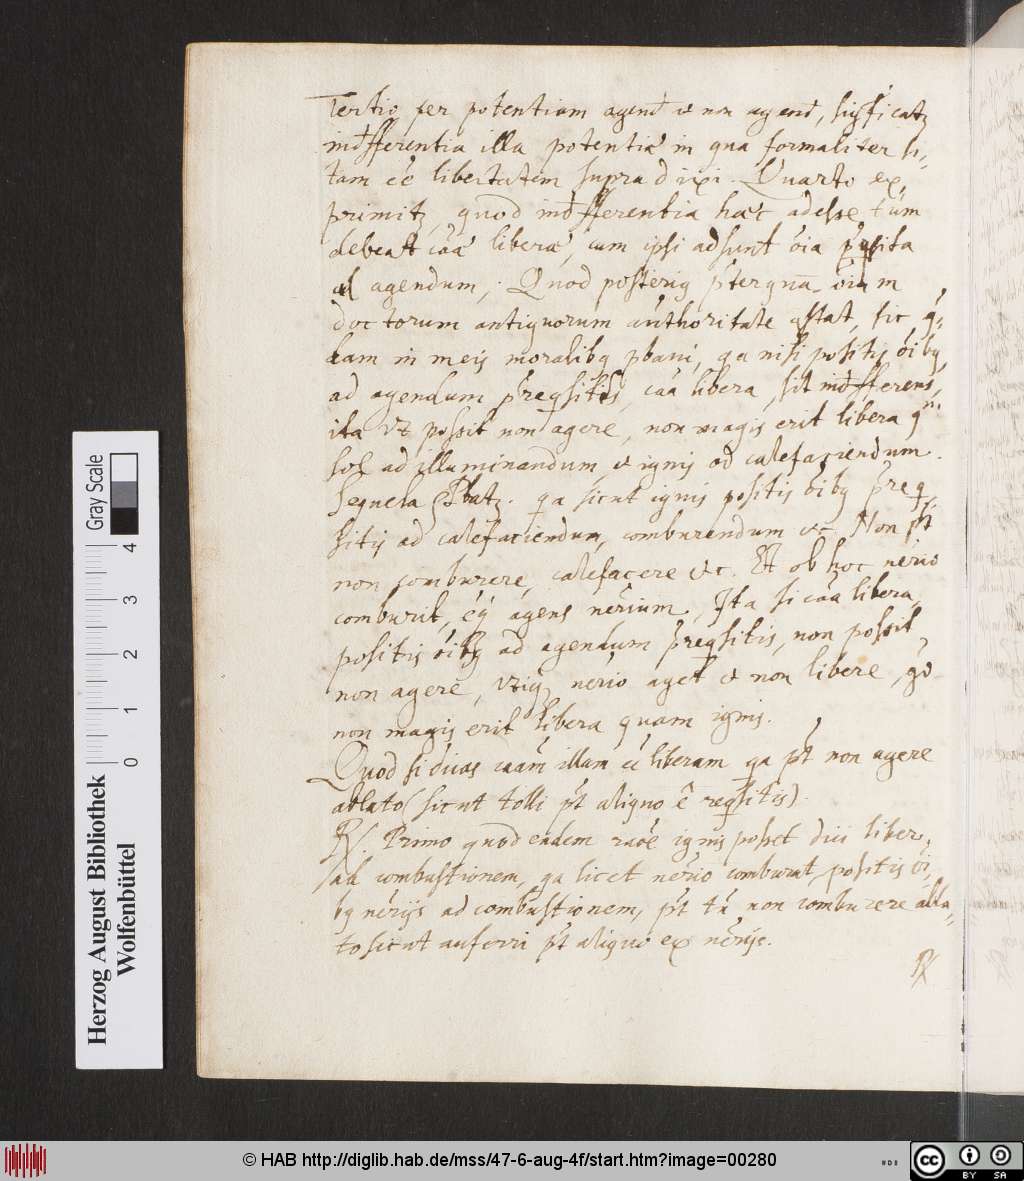 Tertio per potentiam agend̄ et non agend̄, sigficatꝫ
ind̄fferentia illa potentiæ in qua formaliter si,
tam eē libertatem supra dixi. Quarto ex,
primitꝫ, quod ind̄fferentia hæc adesse tūm
debeat cāæ liberæ, cum ipsi adsunt oīa p̄qsita
ad agendum,
doctorum antiquorum authoritate ꝯstat, sic q,
dam in meis moralibꝫ ꝓbavi, qa nisi positis oībꝫ
ad agendum p̄reqsitis, cāa libera, sit ind̄fferens,
ita vt possit non agere, non magis erit libera qn,
sol ad illuminandum et ignis ad calefaciendum.
Sequela ꝓbatꝫ. qa sicut ignis positis oībꝫ p̄req,
sitis ad calefaciendum, comburendum etc Non pt̄
non comburere, calefacere etc. Et ob hoc nērio
comburit, agens nērium, Ita si cāa libera,
positis oībꝫ ad agendum p̄reqsitis, non possit
non agere, vtiqꝫ nērio aget et non libere, gō
non magis erit libera quam ignis.
Quod si dicas cāam illam eē liberam qa pt̄ non agere
ablato (sicut tolli pt̄ aliquo ē reqsitis).
℞. Primo quod eadem raōe ignis posset dici liber,
ad combustionem, qa licet nērio comburat, positis oī,
bꝫ nērijs ad combustionem, pt̄ tn̄ non comburere abla-
to sicut auferri pt̄ aliquo ex nērijs.
℞
Gray Scale
0 1 2 3 4
Herzog August Bibliothek
Wolfenbüttel
© HAB http://diglib.hab.de/mss/47-6-aug-4f/start.htm?image=00280
cc BY SA